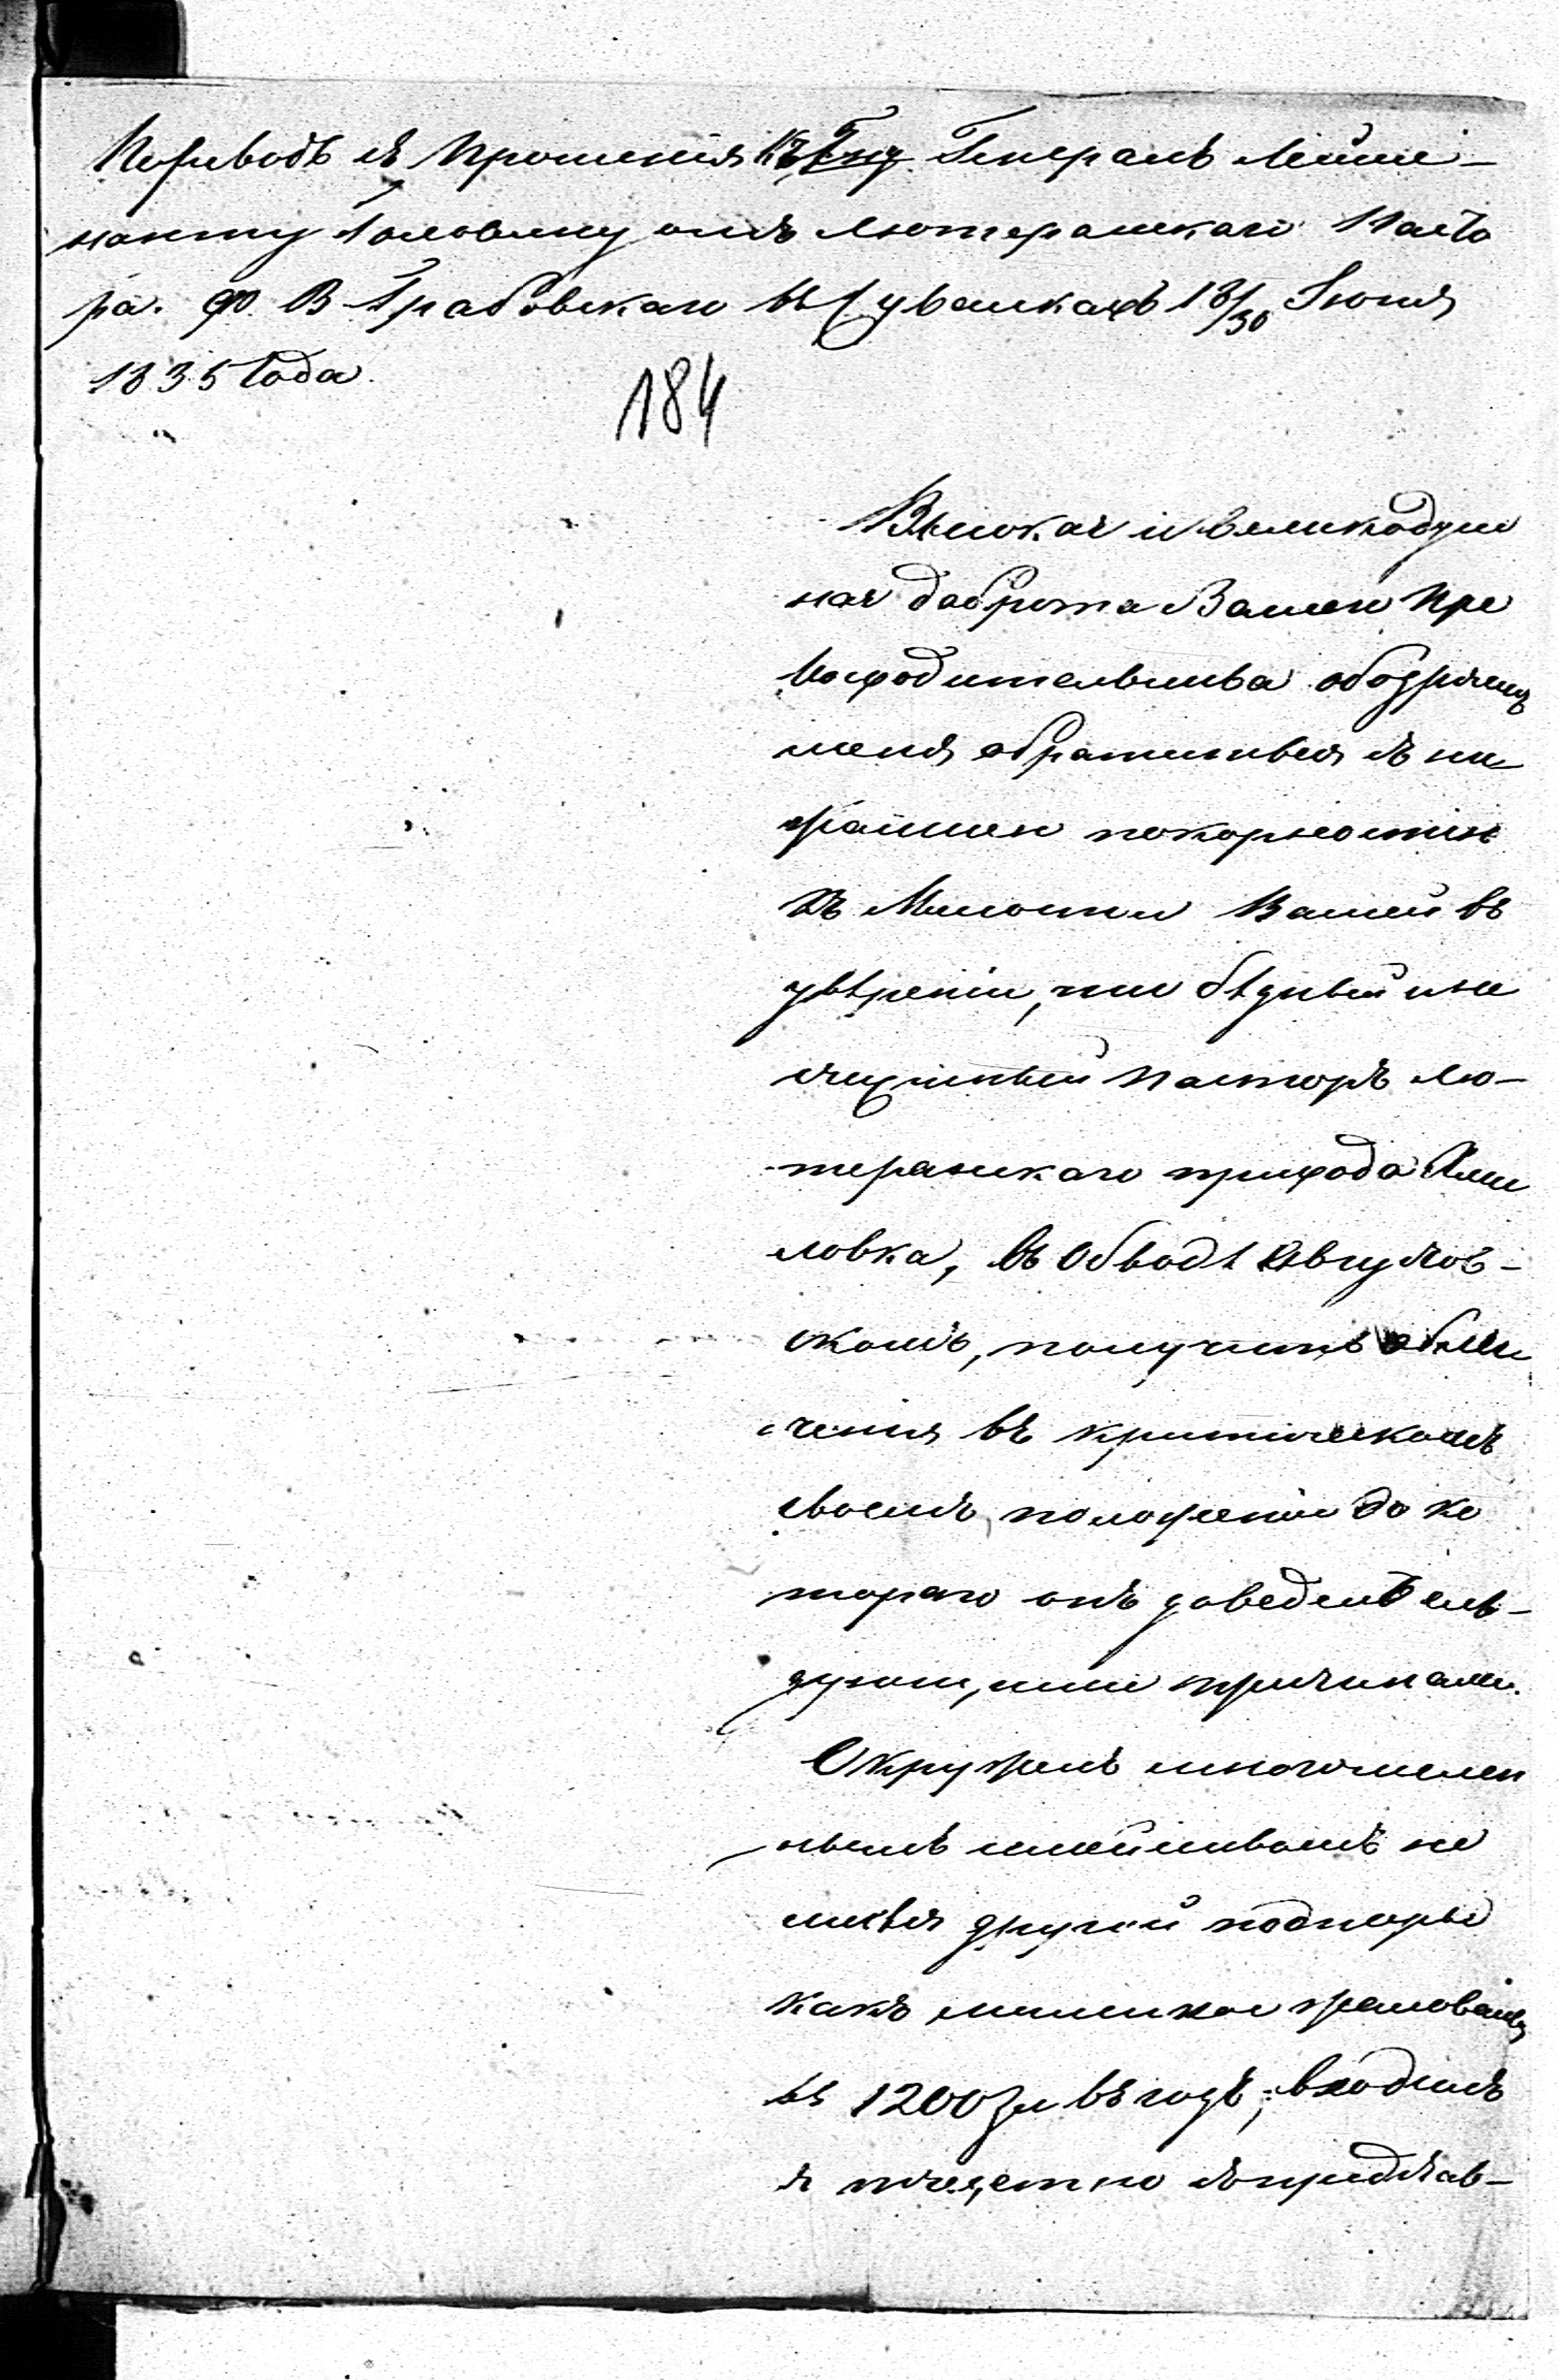 Переводъ съ Прошенія къ Гну Генералъ Лейте-
нанту Головину отъ Лютеранскаго Пасто
ра. Ф. В Грабовскаго въ Сувалкахъ 18/30 Іюня
1835 Года.
184
Высокая и великодуш
ная доброта Вашего Пре
восходительства ободряетъ
меня обратиться съ ни
жайшею покорностію
къ Милости Вашей въ
увѣреніи, что бѣдный и не
счастный Пасторъ Лю-
теранскаго прихода
ловка, въ Обводѣ Августов-
скомъ, получитъ облег
ченія въ критическомъ
своемъ положеніи до ко
тораго онъ доведенъ слѣ-
дующими причинами.
Окруженъ многочислен
нымъ семействомъ не
имѣя другой подпоры
какъ жалованья
въ 1200 зл въ годъ; входилъ
я тщетно съ представ-